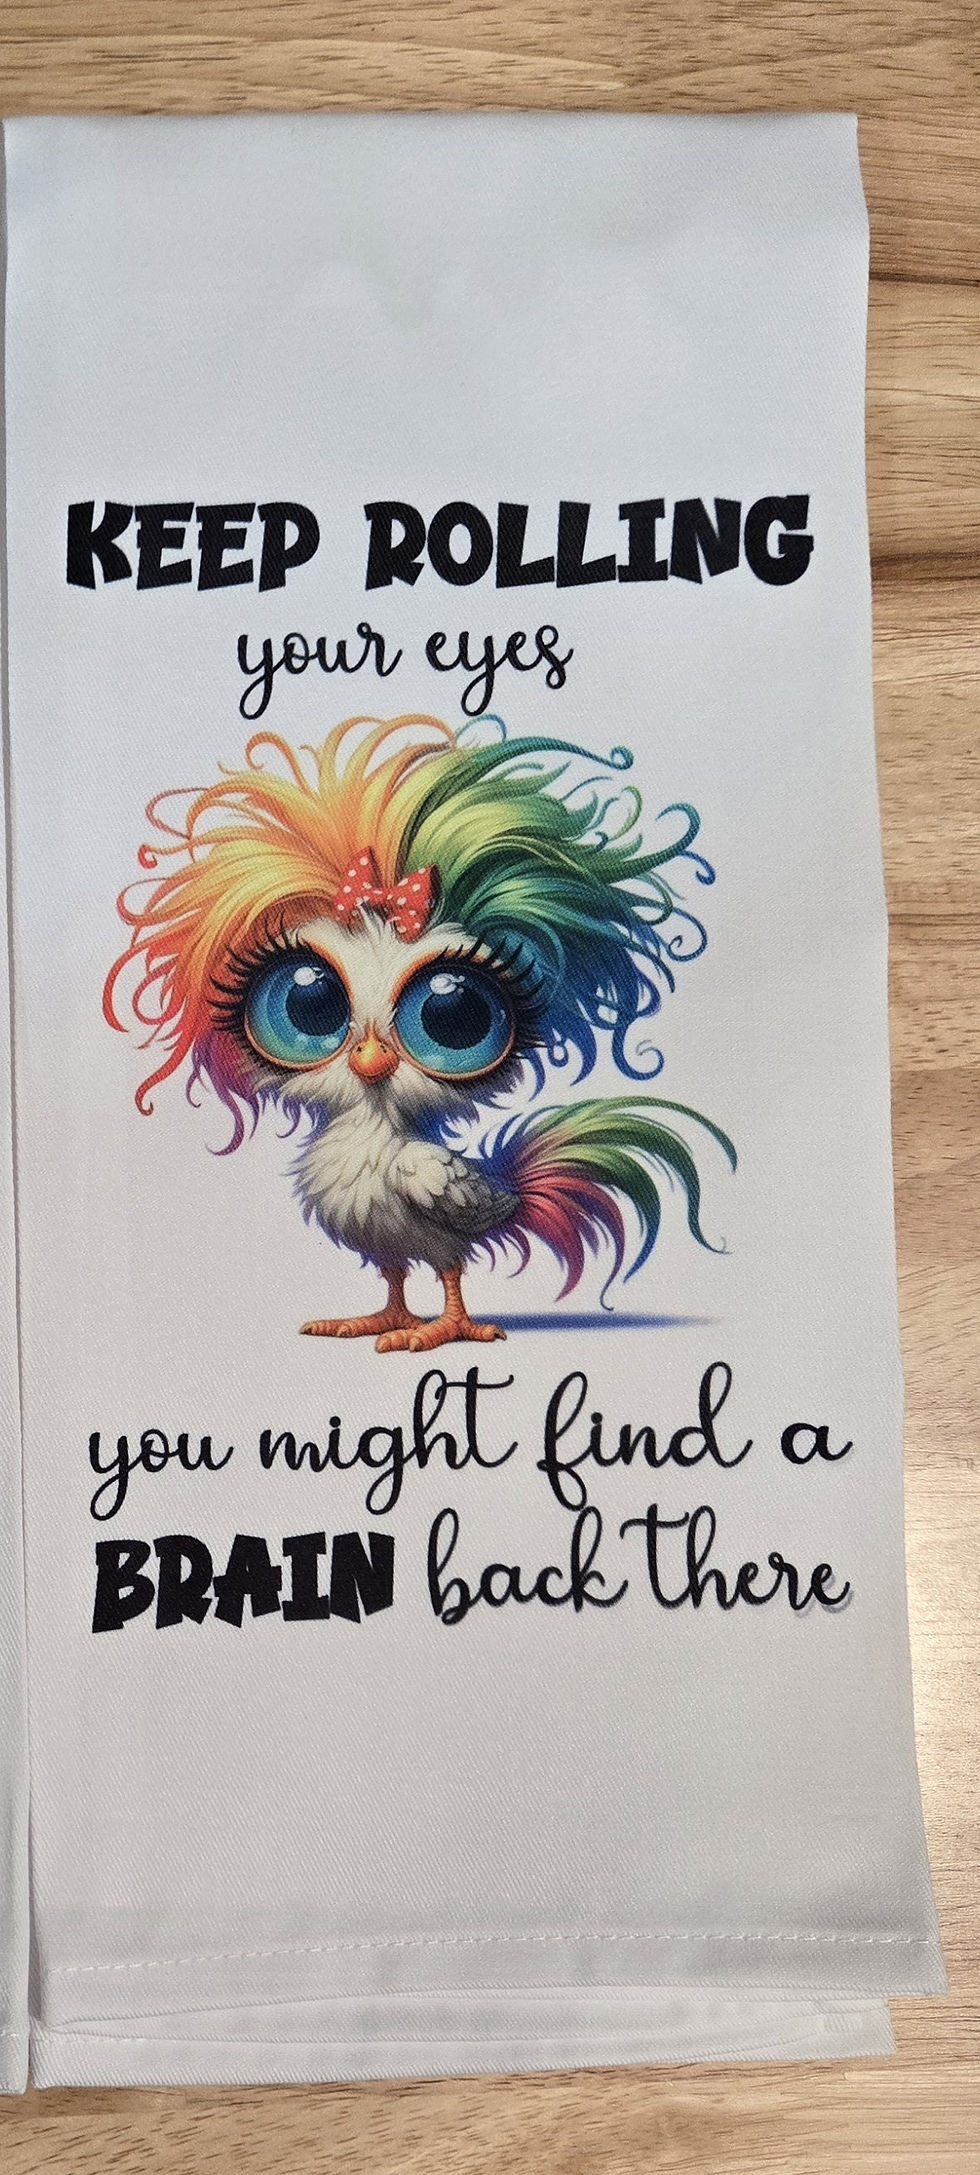 KEEP ROLLING
your eyes
you might find a
BRAIN back there